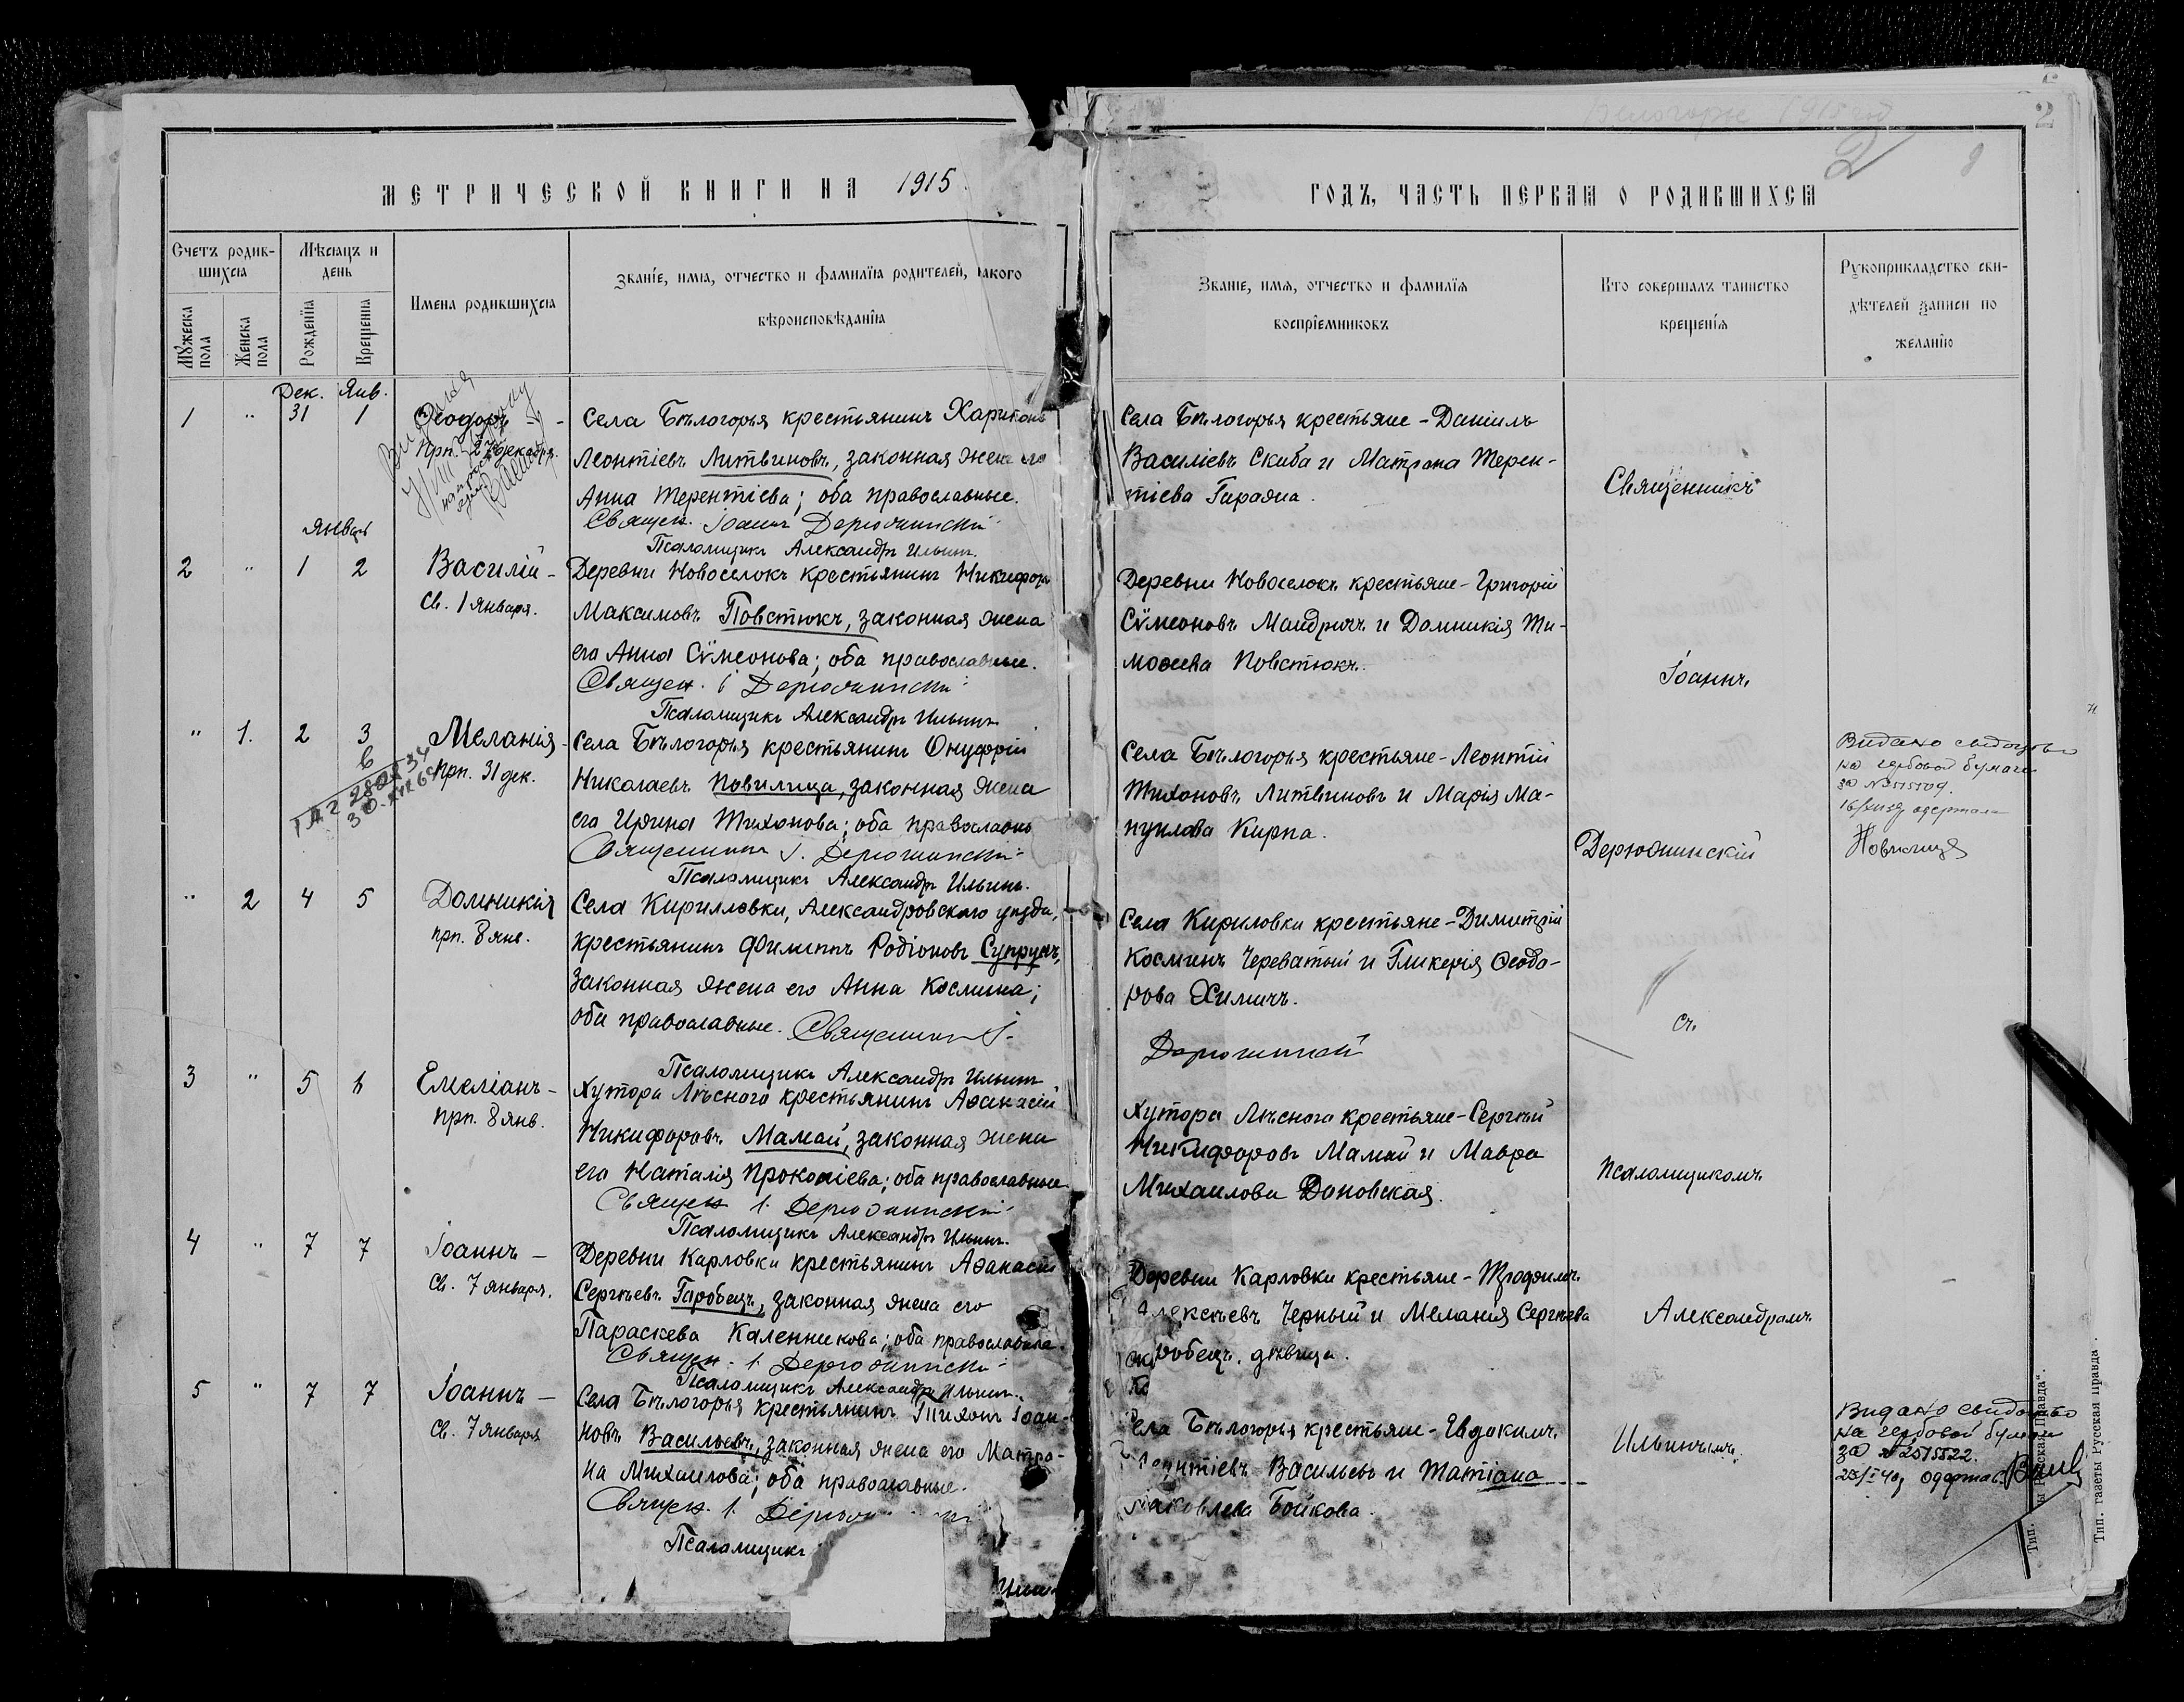 Белогорье 1915 год
2
2
МЕТРИЧЕСКОЙ КНИГИ НА 1915
Счетъ родив-
шихся
Мѣсяцъ и
день
Мужеска
пола
Женска
пола
Рожденія
Крещенія
Имена родившихся
Званіе, имя, отчество и фамилія родителей, какого
вѣроисповѣданія
Дек. Янв.
1 " 31 1
Ѳеодоръ -
Прп. 27 декабря.
Села Бѣлогорья крестьянинъ Харитонъ
Леонтіевъ Литвиновъ, законная жена его
Анна Терентіева; оба православные.
Священ. Іоаннъ Дерюжинскій
Псаломщикъ Александръ Ильинъ.
Январь
2 " 1 2
Василій -
Св. 1 января.
Деревни Новоселокъ крестьянинъ Никифоръ
Максимовъ Повстюкъ, законная жена
его Анна Сѵмеонова; оба православные.
Священ. І Дерюжинскій
Псаломщикъ Александръ Ильинъ
" 1. 2 3
Меланія -
Прп. 31 дек.
Села Бѣлогорья крестьянинъ Онуфрій
Николаевъ Новилица, законная жена
его Ирина Тихонова; оба православн
Священникъ І. Дерюжинскій
Псаломщикъ Александръ Ильинъ.
" 2 4 5
Домникія
прп. 8 янв.
Села Кирилловки, Александровского уѣзда,
крестьянинъ Филиппъ Родіоновъ Супрунъ,
законная жена его Анна Космина;
оба православные. Священникъ І.
Псаломщикъ Александръ Ильинъ
3 " 5 6
Емеліанъ -
прп. 8 янв.
Хутора Лѣсного крестьянинъ Аѳанасій
Никифоровъ Мамай, законная жена
его Наталія Прокопіева; оба православные
Священ І. Дерюжинскій
Псаломщикъ Александръ Ильинъ.
4 " 7 7
Іоаннъ -
Св. 7 января.
Деревни Карловки крестьянинъ Аѳанасій
Сергѣевъ Гаробецъ, законная жена его
Параскева Каленникова; оба православные.
Священ. І. Дерюжинскій
Псаломщикъ Александръ Ильинъ.
5 " 7 7
Іоаннъ -
Св. 7 января
Села Бѣлогорья крестьянинъ Тихонъ Іоан-
новъ Васильевъ, законная жена его Матро-
на Михаилова; оба православные.
Священ. І.
Псаломщикъ
ГОДЪ, ЧАСТЬ ПЕРВАЯ О РОДИВШИХСЯ
Званіе, имя, отчество и фамилія
воспріемниковъ
Кто совершалъ таинство
крещенія
Рукоприкладство сви-
дѣтелей записи по
желанію
Села Бѣлогорья крестьяне - Даніилъ
Василіевъ Скиба и Матрона Терен-
тіева Гараяна.
Деревни Новоселокъ крестьяне - Григорій
Сѵмеоновъ Мандричъ и Домникія Ти-
моѳеева Повстюкъ.
Села Бѣлогорья крестьяне - Леонтій
Тихоновъ Литвиновъ и Марія Ма-
нуилова Кирпа.
Села Кириловки крестьяне - Димитрій
Косминъ Череватый и Гликерія Ѳеодо-
рова Химичъ.
Дерюжинскій
Хутора Лѣсного крестьяне - Сергѣй
Никифоровъ Мамай и Мавра
Михаилова Доновская.
Деревни Карловки крестьяне - Трофимъ
Алексѣевъ Черный и Меланія Сергѣева
робецъ, дѣвица.
Села Бѣлогорья крестьяне - Евдокимъ
Леонтіевъ Васильевъ и Татіана
Іаковлева Бойкова.
Священникъ
Іоаннъ
Дерюжинскій
съ
псаломщикомъ
Александромъ
Ильинымъ.
Видано свидоцтво
на гербовой бумаги
за № 2515509.
одержала
Новилиця
Видано свидоцтво
на гербовой бумаги
за № 2515522.
одержав
Тип. газеты Русская Правда.